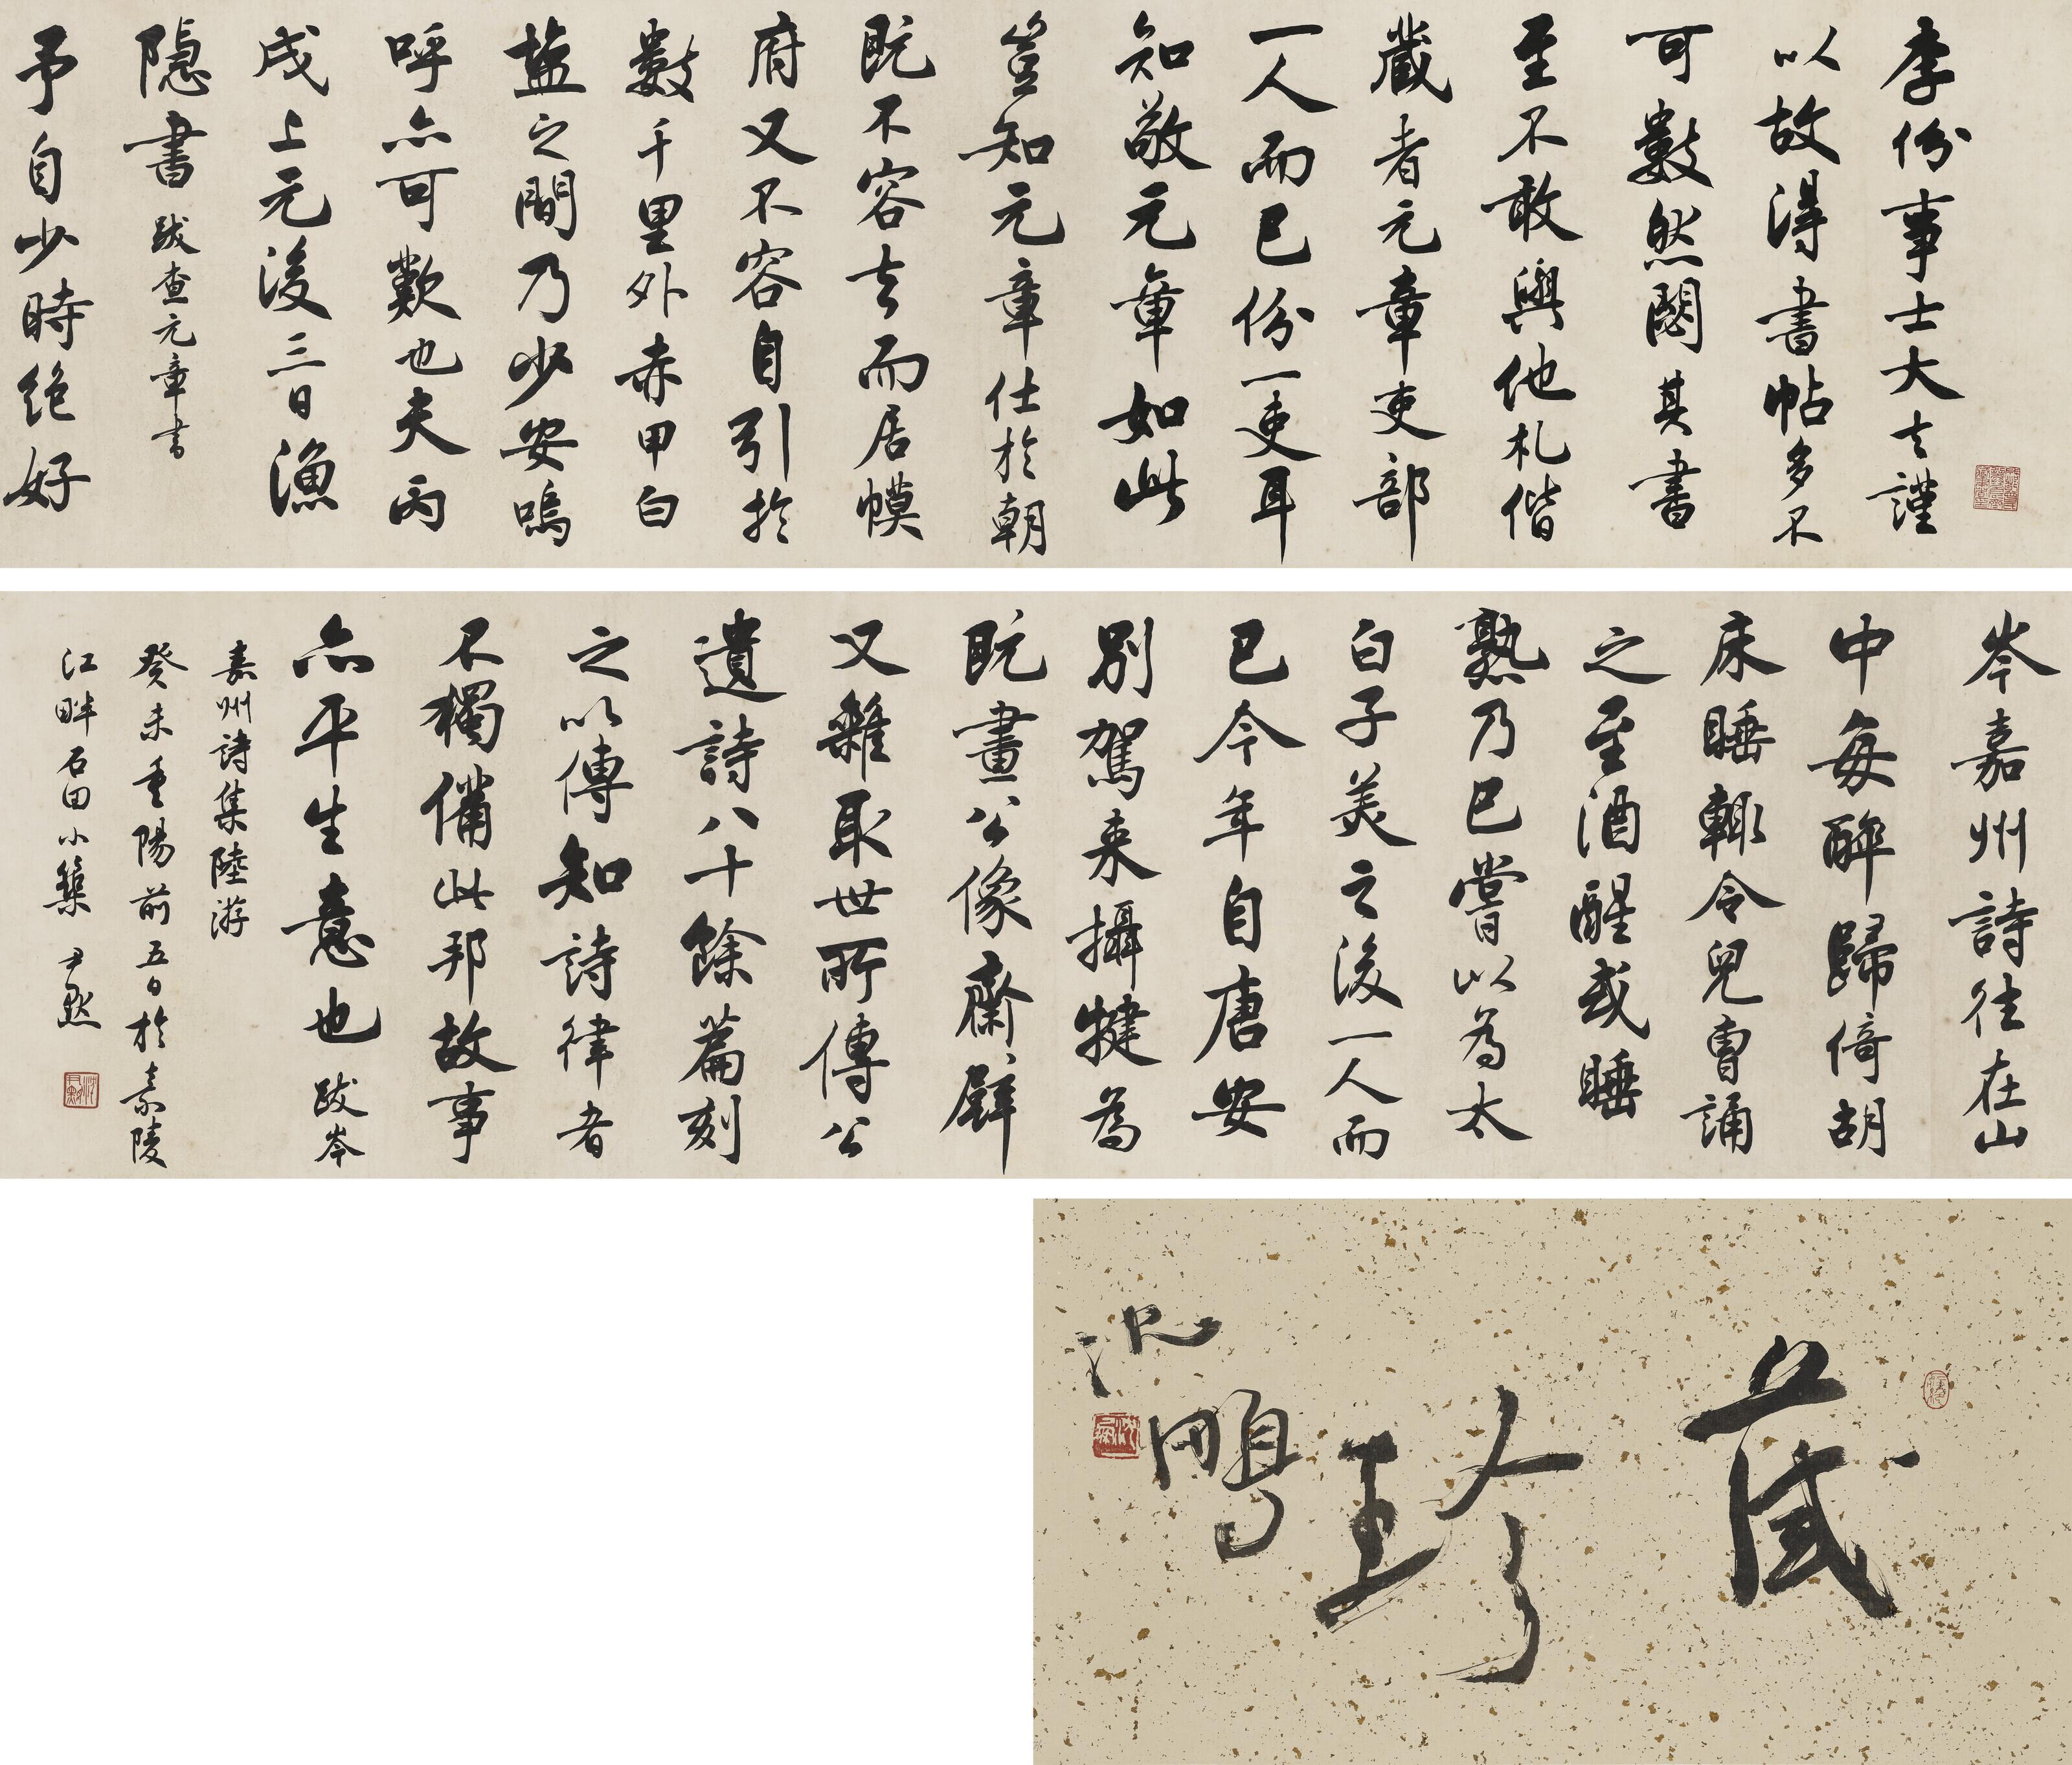 李份事士大夫謹
以故得書帖多不
可數然閟其書
至不敢與他札偕
藏者元章吏部
一人而已份一吏耳
知敬元章如此
豈知元章仕於朝
既不容去而居幙
府又不容自引於
數千里外赤甲白
盐之間乃少安嗚
呼亦可歎也夫丙
戌上元後三日漁
隱書 跋查元章書
予自少時絕好
岑嘉州詩往在山
中每醉歸倚胡
床睡輒令兒曹誦
之至酒醒或睡
熟乃已嘗以為太
白子美之後一人而
已今年自唐安
別駕来攝犍為
既畫公像齋壁
又雜取世所傳公
遺詩八十餘篇刻
之以傳知詩律者
不獨備此邦故事
亦平生意也 跋岑
嘉州詩集陸游
癸未重陽前五日於嘉陵
江畔石田小築 尹默
沈尹默
藏珍
沈鵬